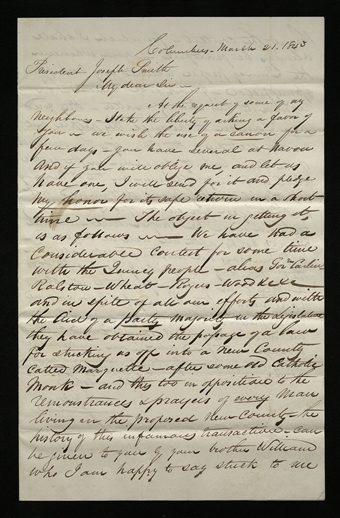 Columbus - March 21. 1843
President Joseph Smith
My dear Sir -
At the request of some of my
Neighbours - I take the liberty of asking a favor of
you - we wish the use of a canon for a
few days - you have several at Nauvoo
and if you will oblige me, and let us
have one, I will send for it and pledge
My honor for its safe return in a short
time - The object in getting it
is as follows - We have had a
Considerable contest for some time
with the Quincy people - alias Gov Carlin
Ralston - Wheat - Rogers - Wood &c &c
and in spite of all our efforts and with
the aid of a party majority in the Legislature
they have obtained the passage of a law
for striking us off into a New County
Called Marquette - after some old Catholic
Monk - and this too in opposition to the
remonstrances & prayers of every man
living in the proposed New County - the
history of this infamous transaction - can
be given to you by your brother William
who I am happy to say stuck to me